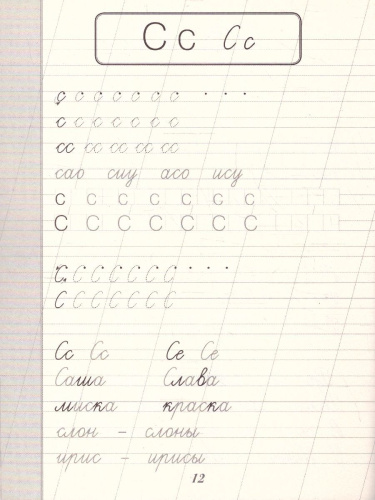 С с С с
с с с с с с с
с с с с с с с
сс сс сс сс сс
сао сиу асо ису
С С С С С С С
С С С С С С С
С С С С С С С
С С С С С С С
Сс Сс Се Се
Саша Слава
миска краска
слон – слоны
ирис – ирисы
12